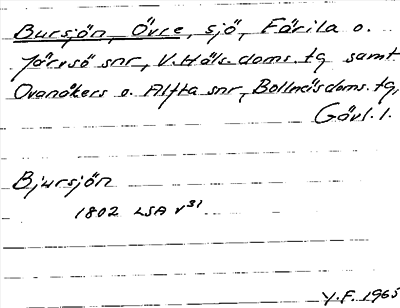 Bursjön, Övre, sjö, Färila o.
Järvsö snr, V. Häls. doms. tg samt
Ovanåkers o. Alfta snr, Bollnäs doms. tg,
Gävl. l.
Bjursjön
1802 LSA v31
Y.F. 1965